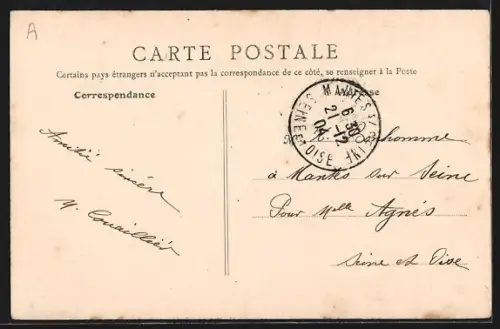 A
CARTE POSTALE
Certains pays étrangers n'acceptant pas la correspondance de ce côté, se renseigner à la Poste
Correspondance
Adresse
Amitié sincère
M. Conaillier
MANTES S/ SEINE
6 30
21 -12
04
SEINE ET OISE
homme
à Mantes sur Seine
Pour Melle Agnès
Seine et Oise